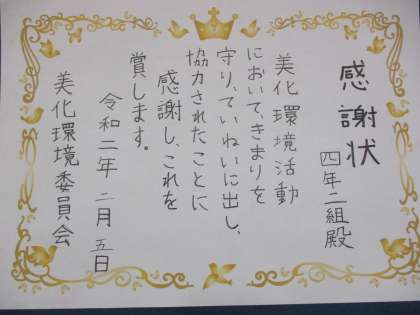 感謝状
四年二組殿
美化環境活動
において、きまりを
守り、ていねいに出し、
協力されたことに
感謝し、これを
賞します。
令和二年 二月 五日
美化環境委員会